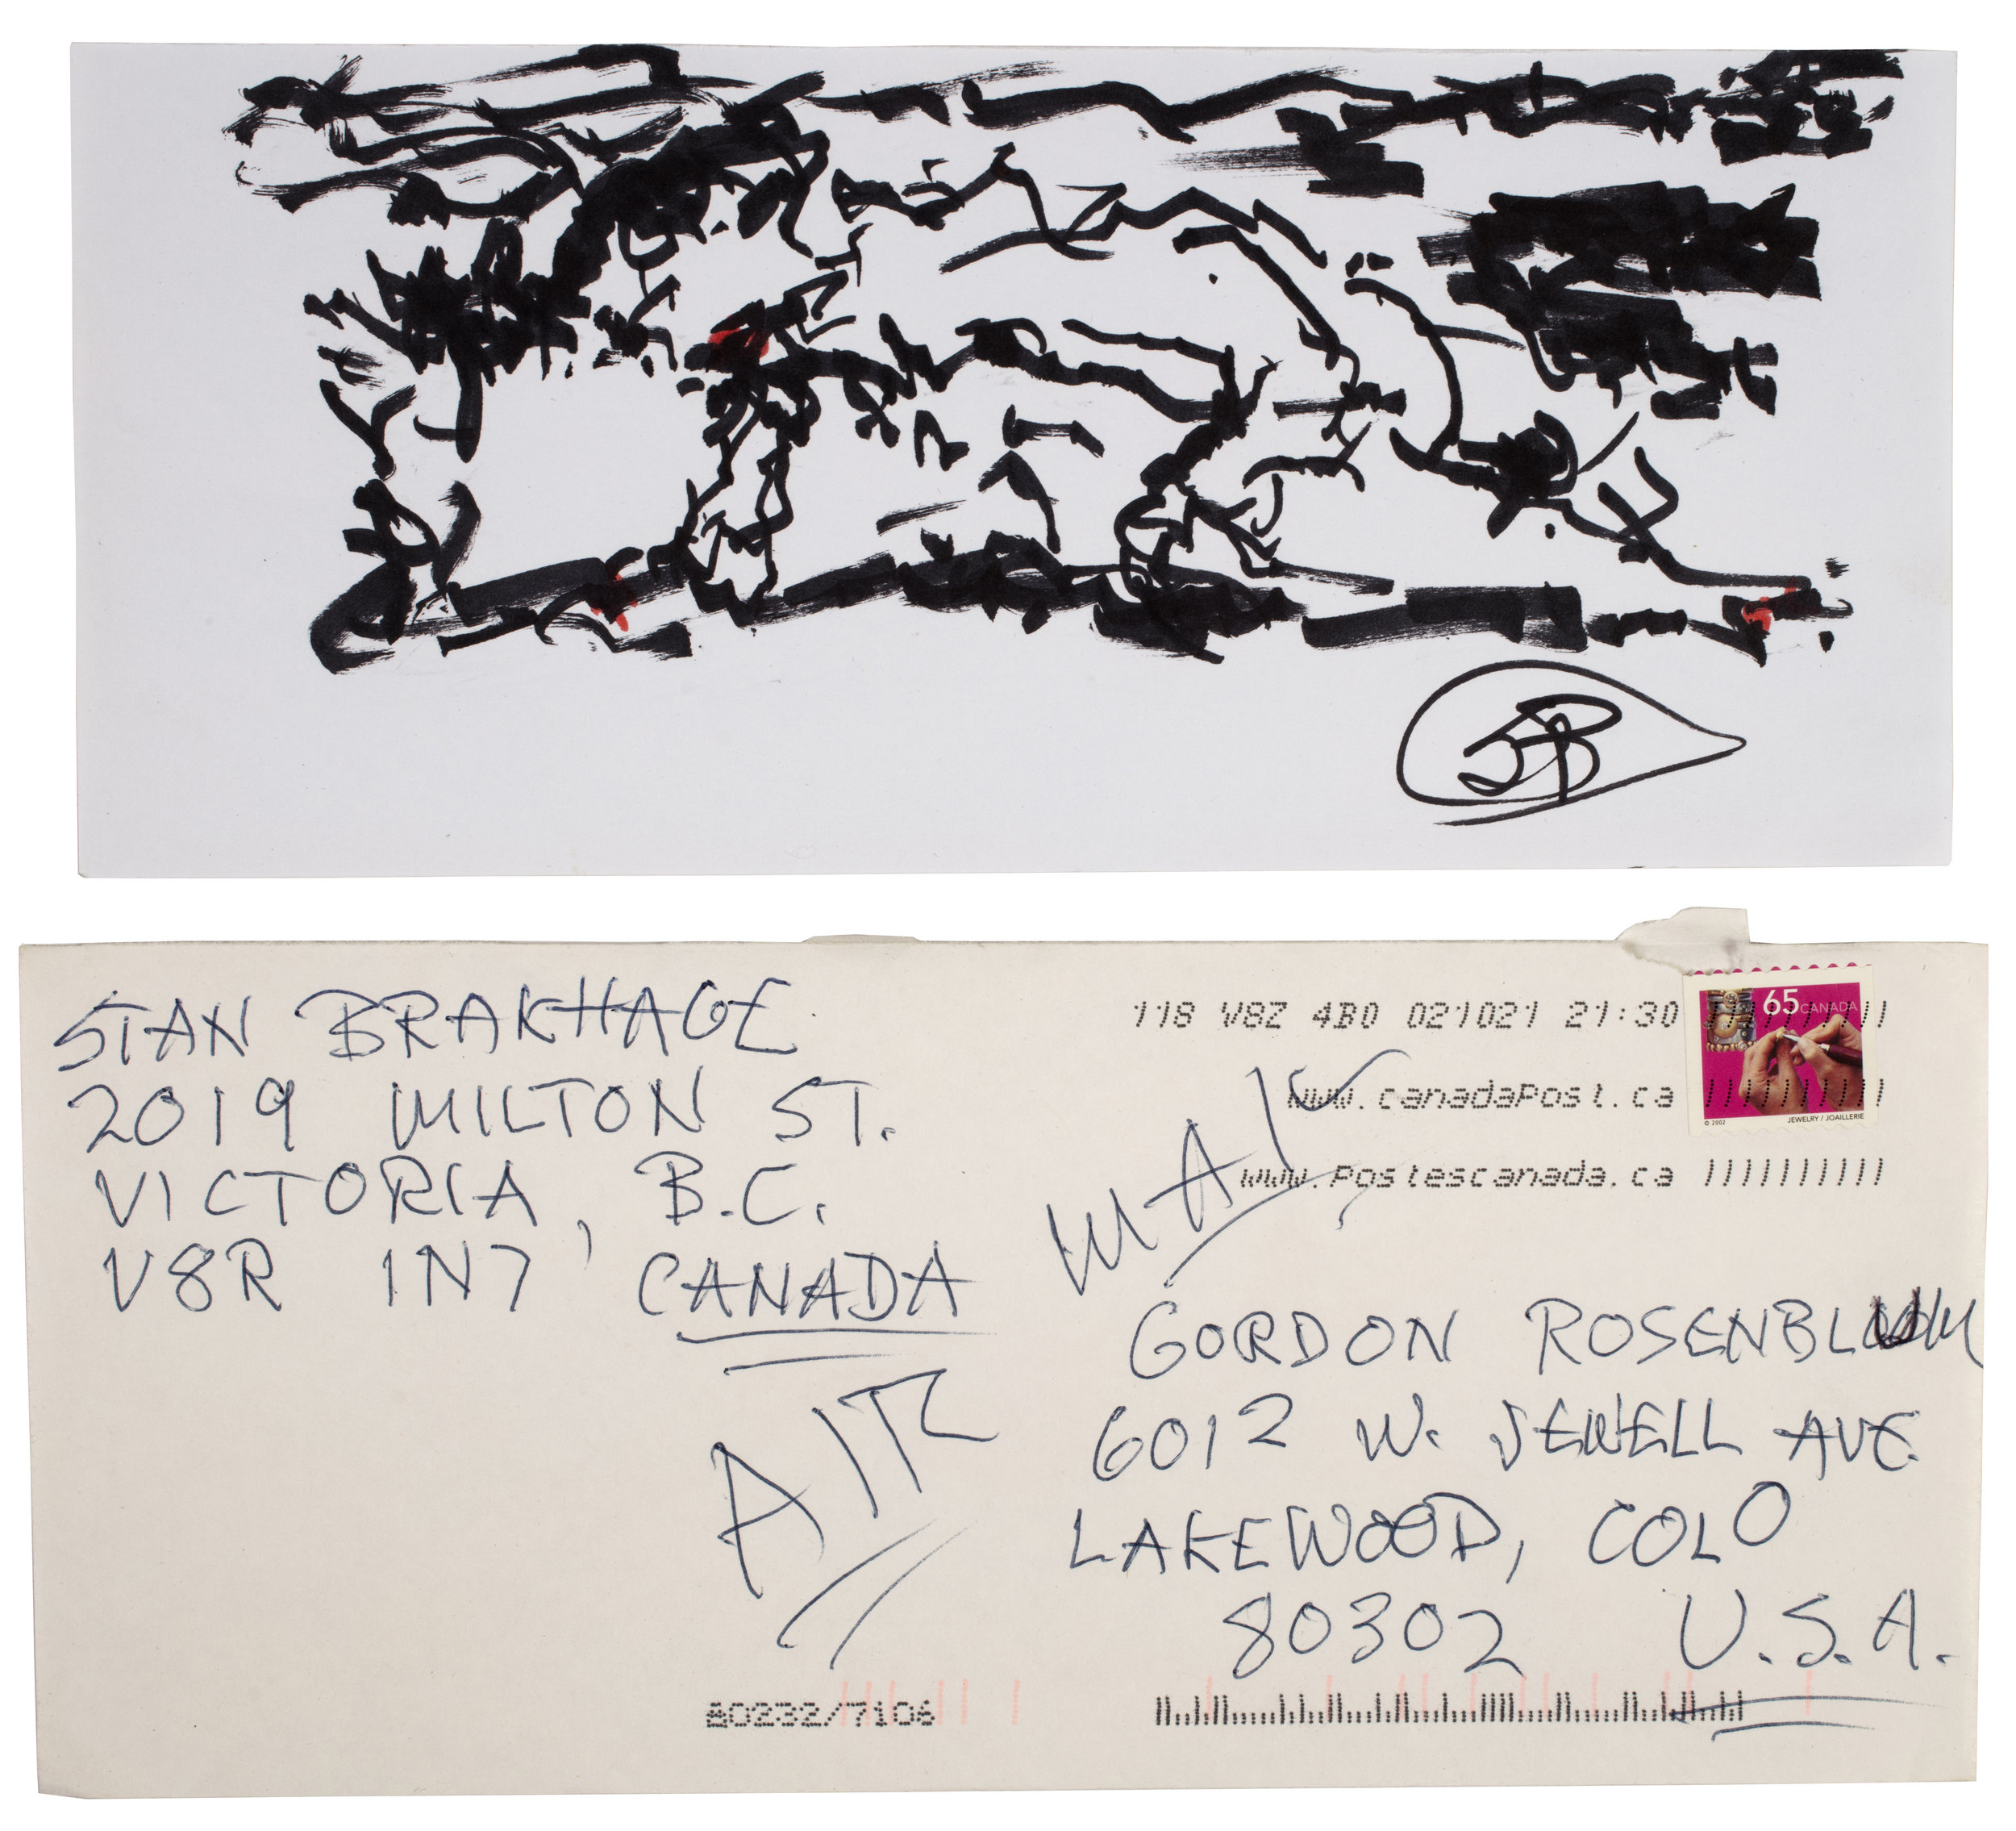 SB
STAN BRAKHAGE
2019 MILTON ST.
VICTORIA, B.C.
V8R 1N7, CANADA
AIR
MAIL
118 V8Z 4B0 021021 21:30
www.canadaPost.ca
www.Postescanada.ca
65 CANADA
© 2002 JEWELRY / JOAILLERIE
GORDON ROSENBLUM
6012 W. JEWELL AVE.
LAKEWOOD, COLO
80302 U.S.A.
80232/7106